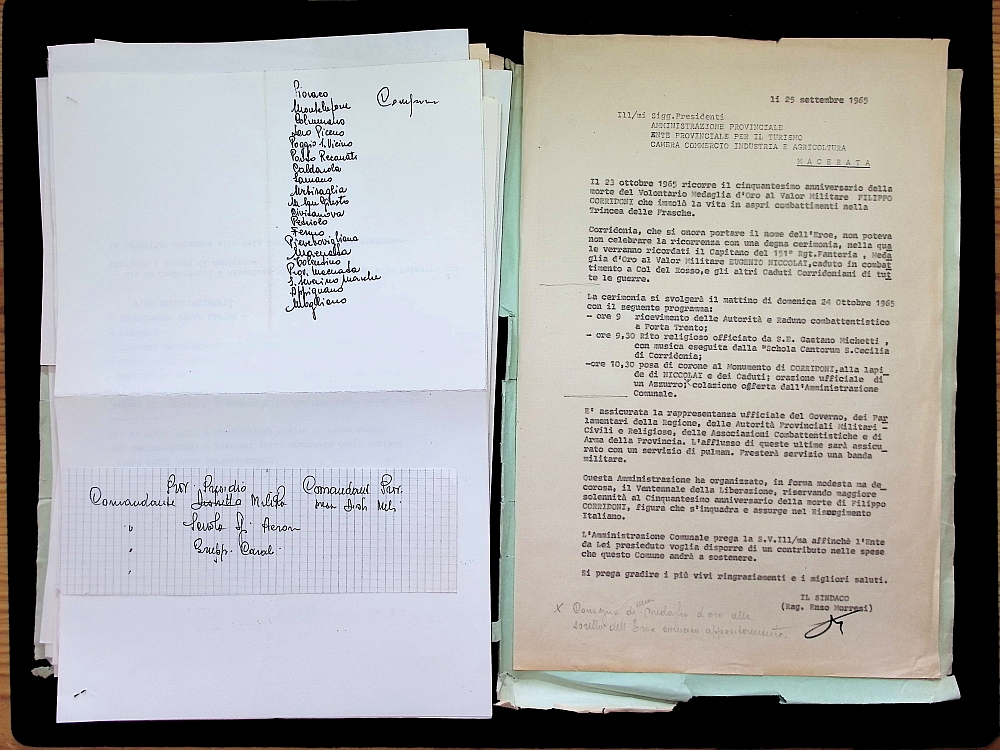 Pioraco
Montelupone
Colmurano
Loro Piceno
Poggio S. Vicino
Porto Recanati
Caldarola
Sarnano
Urbisaglia
M. San Giusto
Civitanova
Petriolo
Fermo
Pievebovigliana
Macerata
Tolentino
Prov. Macerata
S. Severino Marche
Appignano
Mogliano
Comandante
Prov. Presidio
Milit.
Comandanti Prov.
" Scuola Aeron
" Grupp. Carab.
"
lì 25 settembre 1965
Ill/mi Sigg.Presidenti
AMMINISTRAZIONE PROVINCIALE
ENTE PROVINCIALE PER IL TURISMO
CAMERA COMMERCIO INDUSTRIA E AGRICOLTURA
M A C E R A T A
Il 23 ottobre 1965 ricorre il cinquantesimo anniversario della
morte del Volontario Medaglia d'Oro al Valor Militare FILIPPO
CORRIDONI che immolò la vita in aspri combattimenti nella
Trincea delle Frasche.
Corridonia, che si onora portare il nome dell'Eroe, non poteva
non celebrare la ricorrenza con una degna cerimonia, nella qua
le verranno ricordati il Capitano del 151° Rgt.Fanteria , Meda
glia d'Oro al Valor Militare EUGENIO NICCOLAI,caduto in combat
timento a Col del Rosso,e gli altri Caduti Corridoniani di tut
te le guerre.
La cerimonia si svolgerà il mattino di domenica 24 Ottobre 1965
con il seguente programma:
- ore 9 ricevimento delle Autorità e Raduno combattentistico
a Porta Trento;
- ore 9,30 Rito religioso officiato da S.E. Gaetano Michetti ,
con musica eseguita dalla "Schola Cantorum S.Cecilia
di Corridonia;
-ore 10,30 posa di corone al Monumento di CORRIDONI,alla lapi_
de di NICCOLAI e dei Caduti; orazione ufficiale di
un Azzurro; colazione offerta dall'Amministrazione
Comunale.
E' assicurata la rappresentanza ufficiale del Governo, dei Par
lamentari della Regione, delle Autorità Provinciali Militari -
Civili e Religiose, delle Associazioni Combattentistiche e di
Arma della Provincia. L'afflusso di queste ultime sarà assicu_
rato con un servizio di pulman. Presterà servizio una banda
militare.
Questa Amministrazione ha organizzato, in forma modesta ma de_
corosa, il Ventennale della Liberazione, riservando maggiore
solennità al Cinquantesimo anniversario della morte di Filippo
CORRIDONI, figura che s'inquadra e assurge nel Risorgimento
Italiano.
L'Amministrazione Comunale prega la S.V.Ill/ma affinchè l'Ente
da Lei presieduto voglia disporre di un contributo nelle spese
che questo Comune andrà a sostenere.
Si prega gradire i più vivi ringraziamenti e i migliori saluti.
IL SINDACO
(Rag. Enzo Morresi)
X Consegna di una medaglia d'oro alla
sorella dell'Eroe